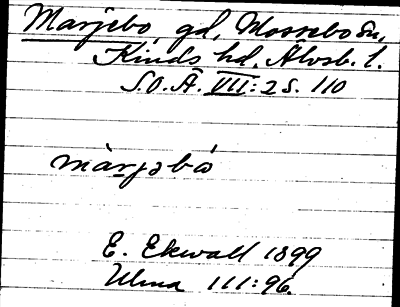 Marjebo, gd, Mossebo sn,
Kinds hd. Älvsb. l.
S.O.Ä. VII:2 s. 110
màrjəbó
E. Ekwall 1899
Ulma 111:96.